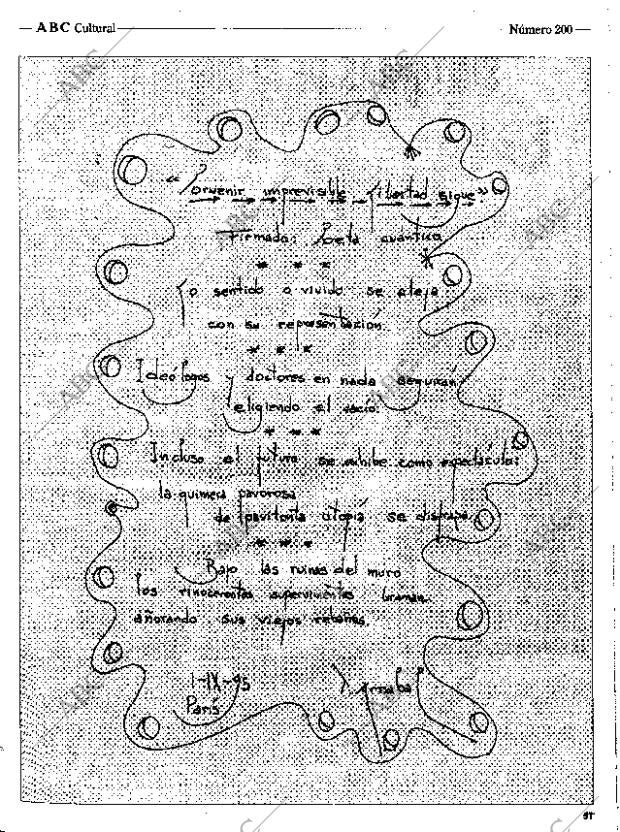 ABC Cultural
Número 200
« Porvenir imprevisible libertad sigue »
Firmado: beta cuántica
* * *
Lo sentido o vivido se aleja
con su representación.
* * *
Ideólogos y doctores en nada seguirán
eligiendo el vacío.
* * *
Incluso el futuro se exhibe como espectáculo:
la quimera pavorosa
de pavitonta utopía se disipa.
* * *
Bajo las ruinas del muro
los rinocerontes supervivientes braman
añorando sus viejos rebaños.
1-IX-95
París
Arrabal